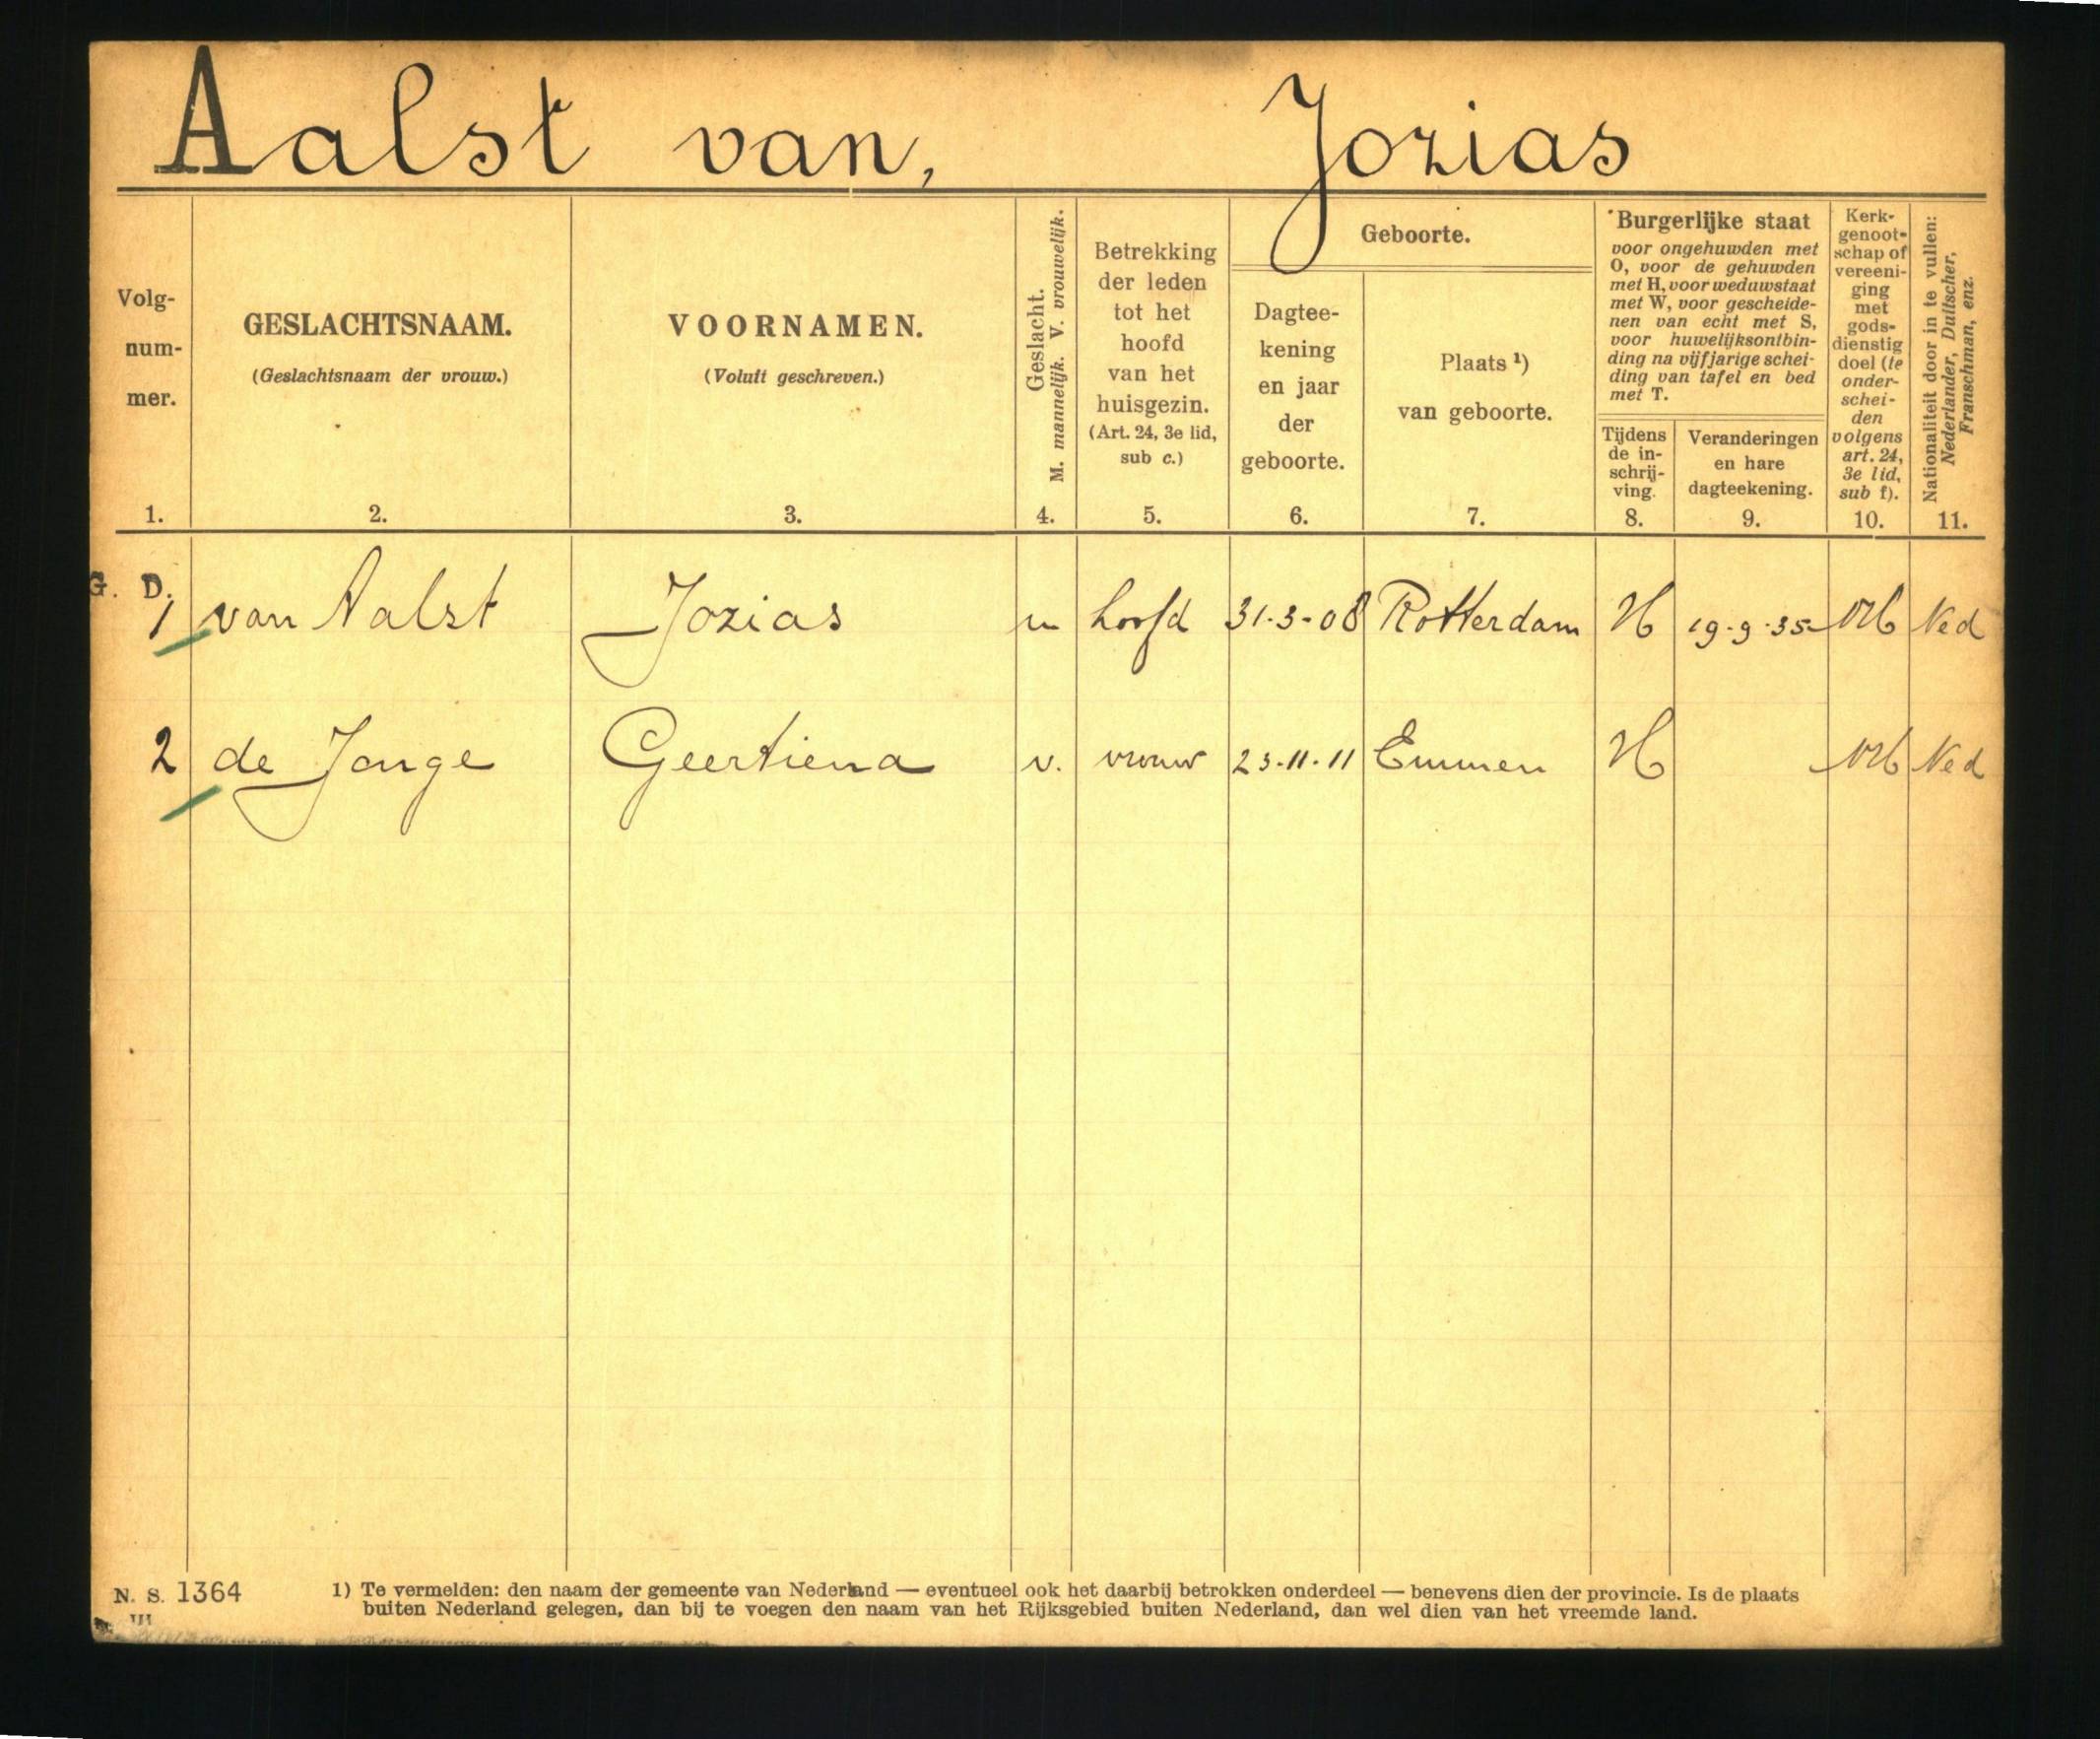 Aalst van, Jozias
Volg-
num-
mer.
1.
GESLACHTSNAAM.
(Geslachtsnaam der vrouw.)
2.
VOORNAMEN.
(Voluit geschreven.)
3.
Geslacht.
M. mannelijk. V. vrouwelijk.
4.
Betrekking
der leden
tot het
hoofd
van het
huisgezin.
(Art. 24, 3e lid,
sub c.)
5.
Geboorte.
Dagtee-
kening
en jaar
der
geboorte.
6.
Plaats ¹)
van geboorte.
7.
Burgerlijke staat
voor ongehuwden met
O, voor de gehuwden
met H, voor weduwstaat
met W, voor gescheide-
nen van echt met S,
voor huwelijksontbin-
ding na vijfjarige schei-
ding van tafel en bed
met T.
Tijdens
de in-
schrij-
ving.
8.
Veranderingen
en hare
dagteekening.
9.
Kerk-
genoot-
schap of
vereeni-
ging
met
gods-
dienstig
doel (te
onder-
schei-
den
volgens
art. 24,
3e lid,
sub f).
10.
Nationaliteit door in te vullen:
Nederlander, Duitscher,
Franschman, enz.
11.
G. D.
1 van Aalst Jozias m hoofd 31-3-08 Rotterdam H 19-9-35 NH Ned
2 de Jonge Geertiena v. vrouw 23-11-11 Emmen H NH Ned
N. S. 1364
III
1) Te vermelden: den naam der gemeente van Nederland — eventueel ook het daarbij betrokken onderdeel — benevens dien der provincie. Is de plaats
buiten Nederland gelegen, dan bij te voegen den naam van het Rijksgebied buiten Nederland, dan wel dien van het vreemde land.